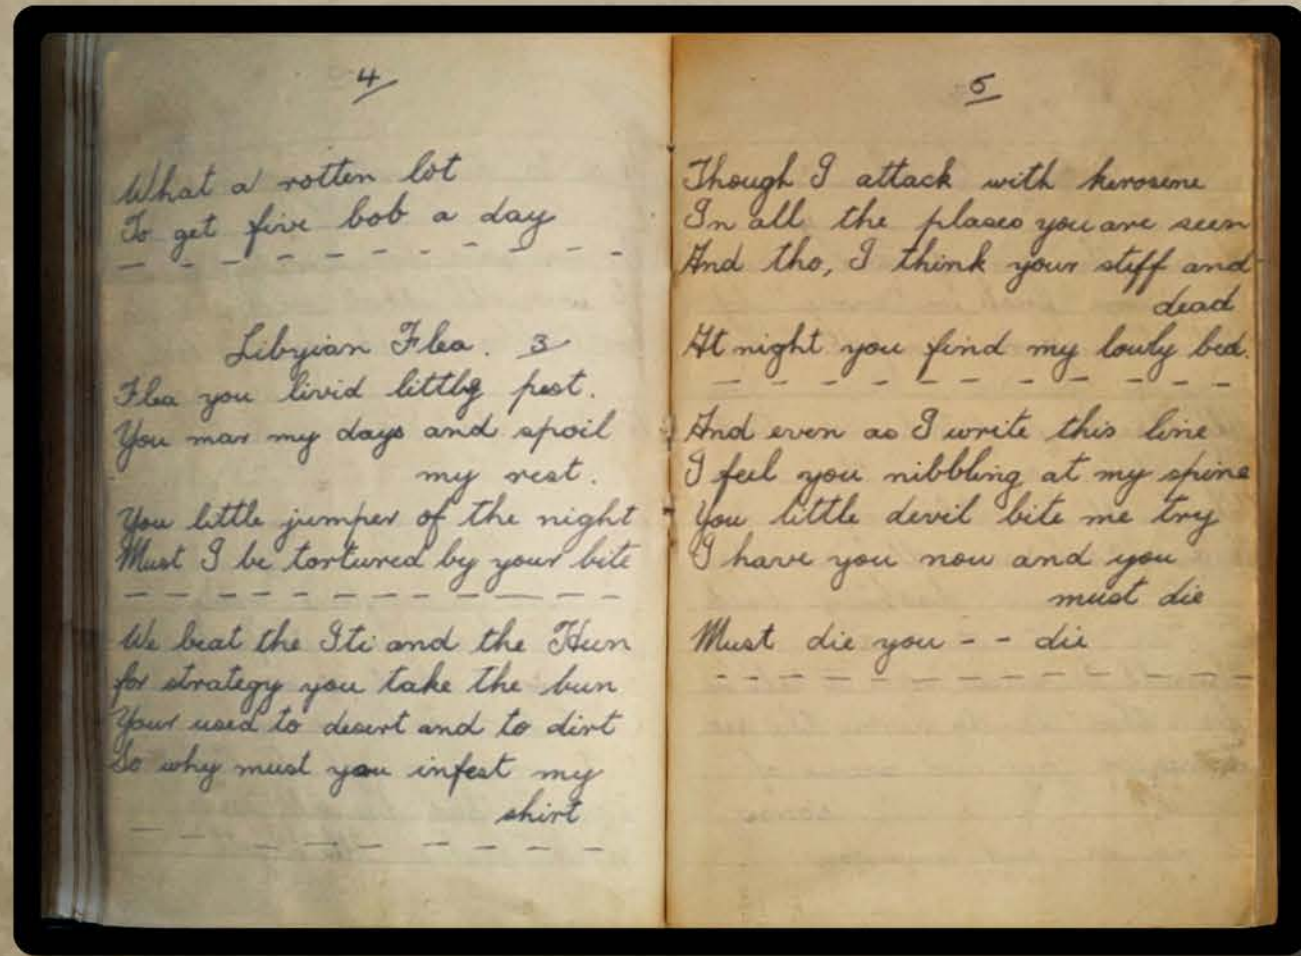 4
What a rotten lot
To get five bob a day
Libyian Flea. 3
Flea you livid little pest.
You mar my days and spoil
my rest.
You little jumper of the night
Must I be tortured by your bite
We beat the Iti and the Hun
for strategy you take the bun
Your used to desert and to dirt
So why must you infest my
shirt
5
Though I attack with kerosene
In all the places you are seen
And tho, I think your stiff and
dead
At night you find my lowly bed.
And even as I write this line
I feel you nibbling at my spine
You little devil bite me try
I have you now and you
must die
Must die you - - die